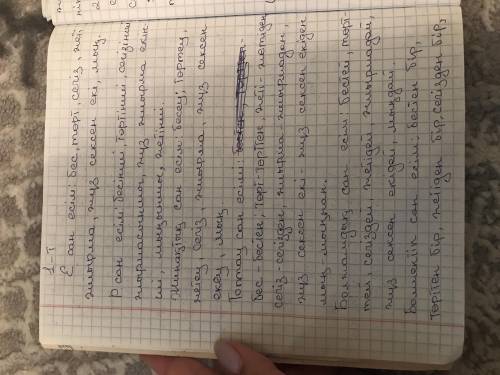 1-т
Е сан есімі: бес, төрт, сегіз, жеті
жиырма, жүз сексен екі, мың.
Р сан есімі: бесінші, төртінші, сегізінші
жиырмасыншы, жүз жиырма екін-
ші, мыңыншы, жетінші.
Жинақтық сан есім: бесеу, төртеу,
жетеу, сегіз, жиырма, жүз сексен
екеу, мың
Топтау сан есімі:
бес - бестен, төрт-төрттен, жеті - жетіден
сегіз - сегізден, жиырма - жиырмадан,
жүз сексен екі - жүз сексен екіден
мың - мыңнан.
Болжалдық сан есімі: бестей, төрт-
тей, сегіздей, жетідей, жиырмадай,
жүз сексен екідей, мыңдай.
Бөлшектік сан есімі: бестен бір,
төрттен бір, жетіден бір, сегізден бір,